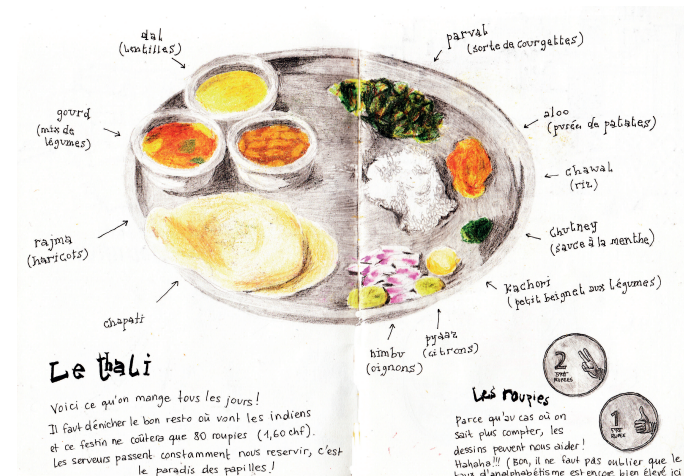 dal
(lentilles)
parval
(sorte de courgettes)
gourd
(mix de
légumes)
aloo
(purée de patates)
chawal
(riz)
rajma
(haricots)
chutney
(sauce à la menthe)
kachori
(petit beignet aux légumes)
chapati
nimbu
(oignons)
pyaaz
(citrons)
Le thali
Voici ce qu'on mange tous les jours!
Il faut dénicher le bon resto où vont les indiens
et ce festin ne coûtera que 80 roupies (1,60 chf).
Les serveurs passent constamment nous reservir, c'est
le paradis des papilles!
2
RUPEES
1
RUPEE
Les roupies
Parce qu'au cas où on
sait plus compter, les
dessins peuvent nous aider!
Hahaha!!! (Bon, il ne faut pas oublier que le
taux d'analphabétisme est encore bien élevé ici